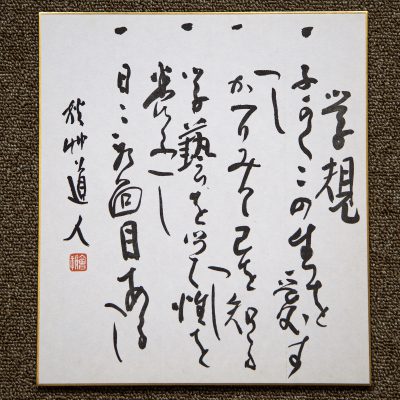 学規
・ふかくこの生を愛す
へし
・かへりみて己を知る
へし
・学藝を以て性を
養ふへし
・日ゝ新面目ある
へし
秋艸道人